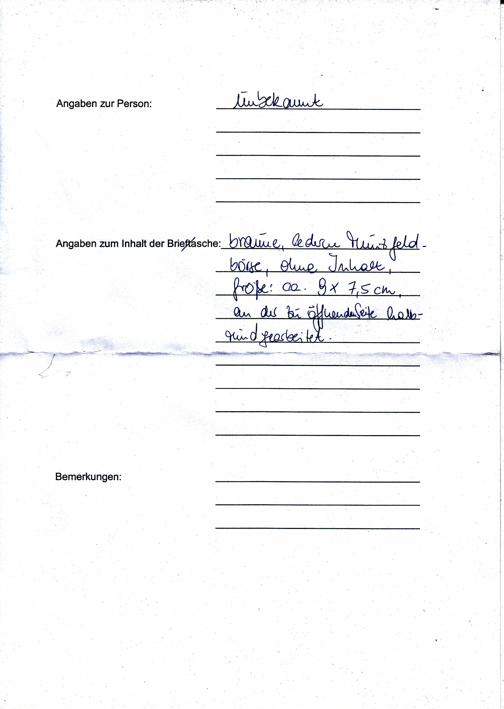 Angaben zur Person: Unbekannt
Angaben zum Inhalt der Brieftasche: braune, ledern Münzgeld-
börse, ohne Inhalt,
Größe: ca. 9 x 7,5 cm,
an der zu öffnenden Seite halb-
rund gearbeitet.
Bemerkungen: